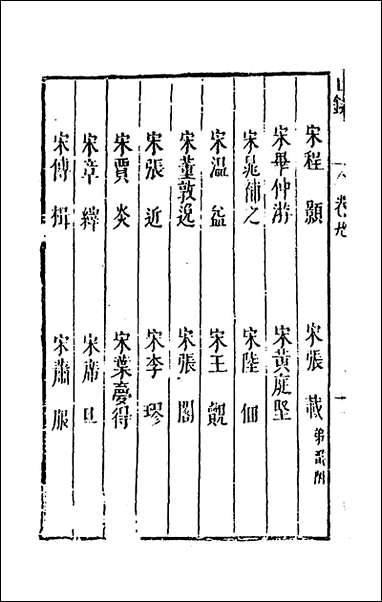 卷九
宋程顥　宋張載 弟戩附
宋畢仲游　宋黃庭堅
宋晁補之　宋陸佃
宋温益　宋王覿
宋董敦逸　宋張閣
宋張近　宋李璆
宋賈炎　宋葉夢得
宋章縡　宋席旦
宋傅楫　宋蕭服